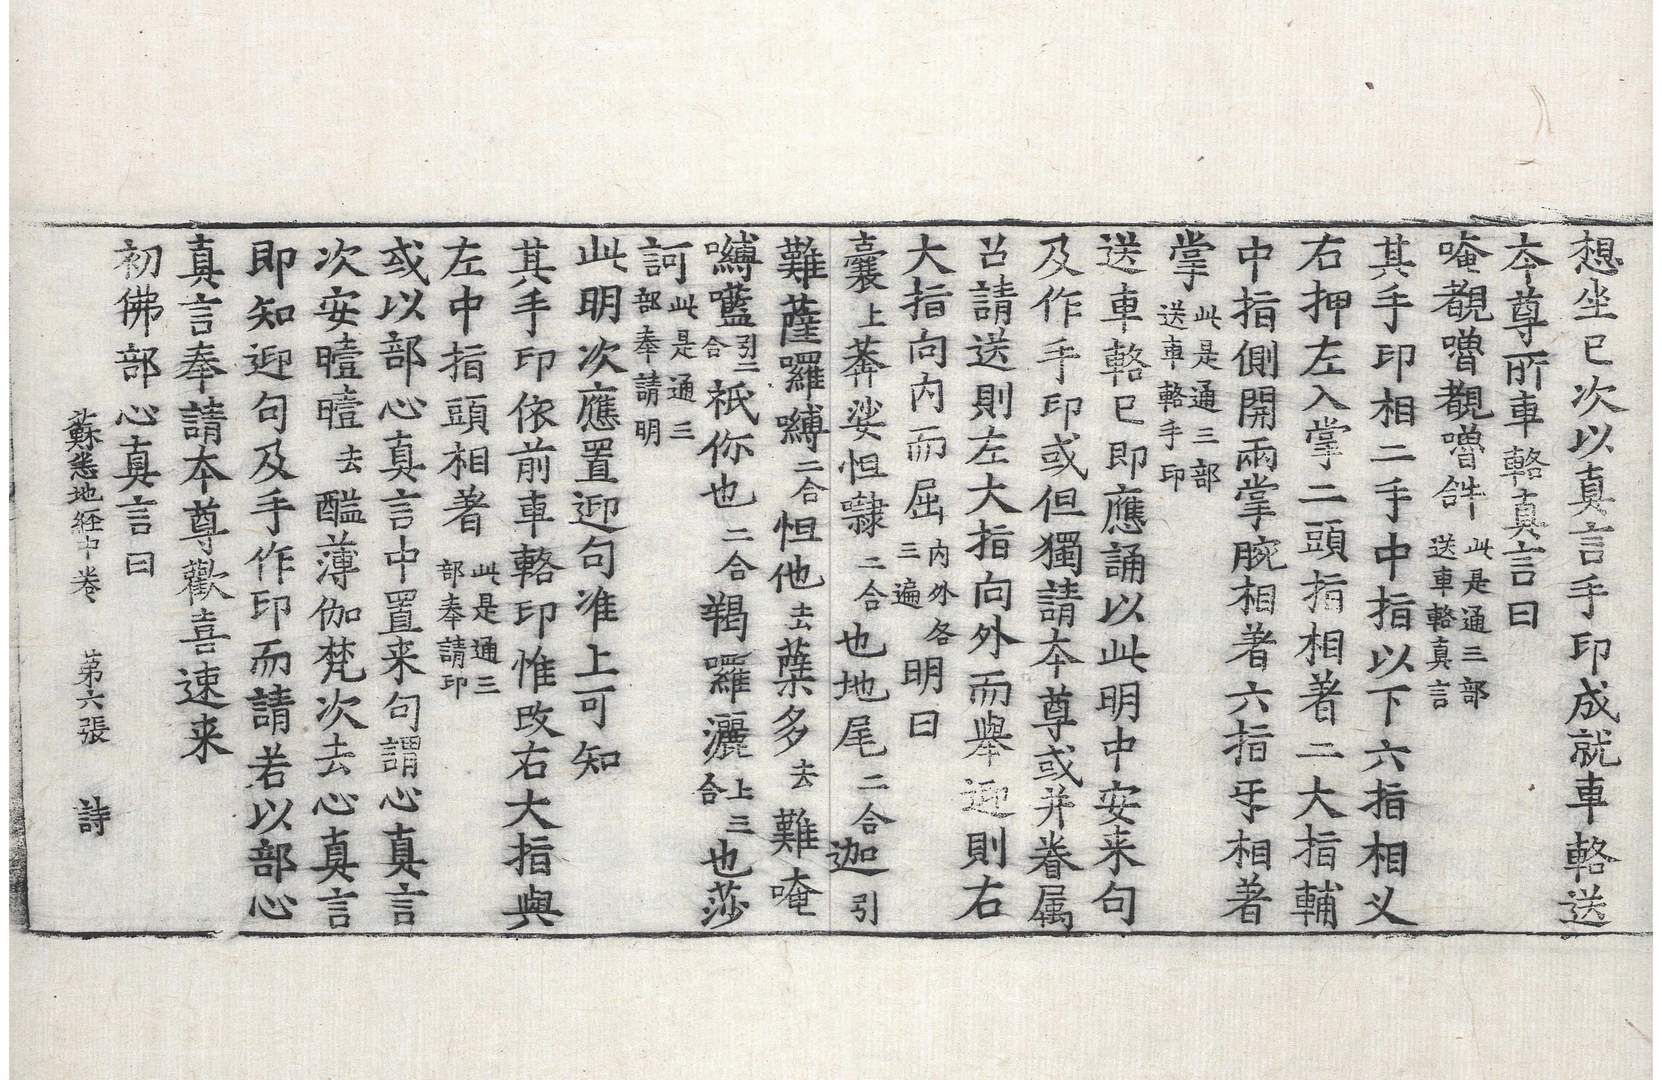 想坐已次以真言手印成就車輅送
本尊所車輅真言曰
唵覩嚕覩嚕𤙖此是通三部送車輅真言
其手印相二手中指以下六指相叉
右押左入掌二頭指相著二大指輔
中指側開兩掌腕相著六指㸦相著
掌此是通三部送車輅手印
送車輅已即應誦以此明中安来句
及作手印或但獨請本尊或并眷属
召請送則左大指向外而舉迎則右
大指向内而屈内外各三遍明曰
曩上莽娑怛㘑二合也地尾二合迦引
難薩囉嚩二合怛他去蘖多去難唵
嚩𡄣引二合祇你也二合羯囉灑上三合也莎
訶此是通三部奉請明
此明次應置迎句准上可知
其手印依前車輅印惟改右大指與
左中指頭相著此是通三部奉請印
或以部心真言中置来句謂心真言
次安曀曀去醯薄伽梵次去心真言
即知迎句及手作印而請若以部心
真言奉請本尊歡喜速来
初佛部心真言曰
蘇悉地経中卷　第六張　詩